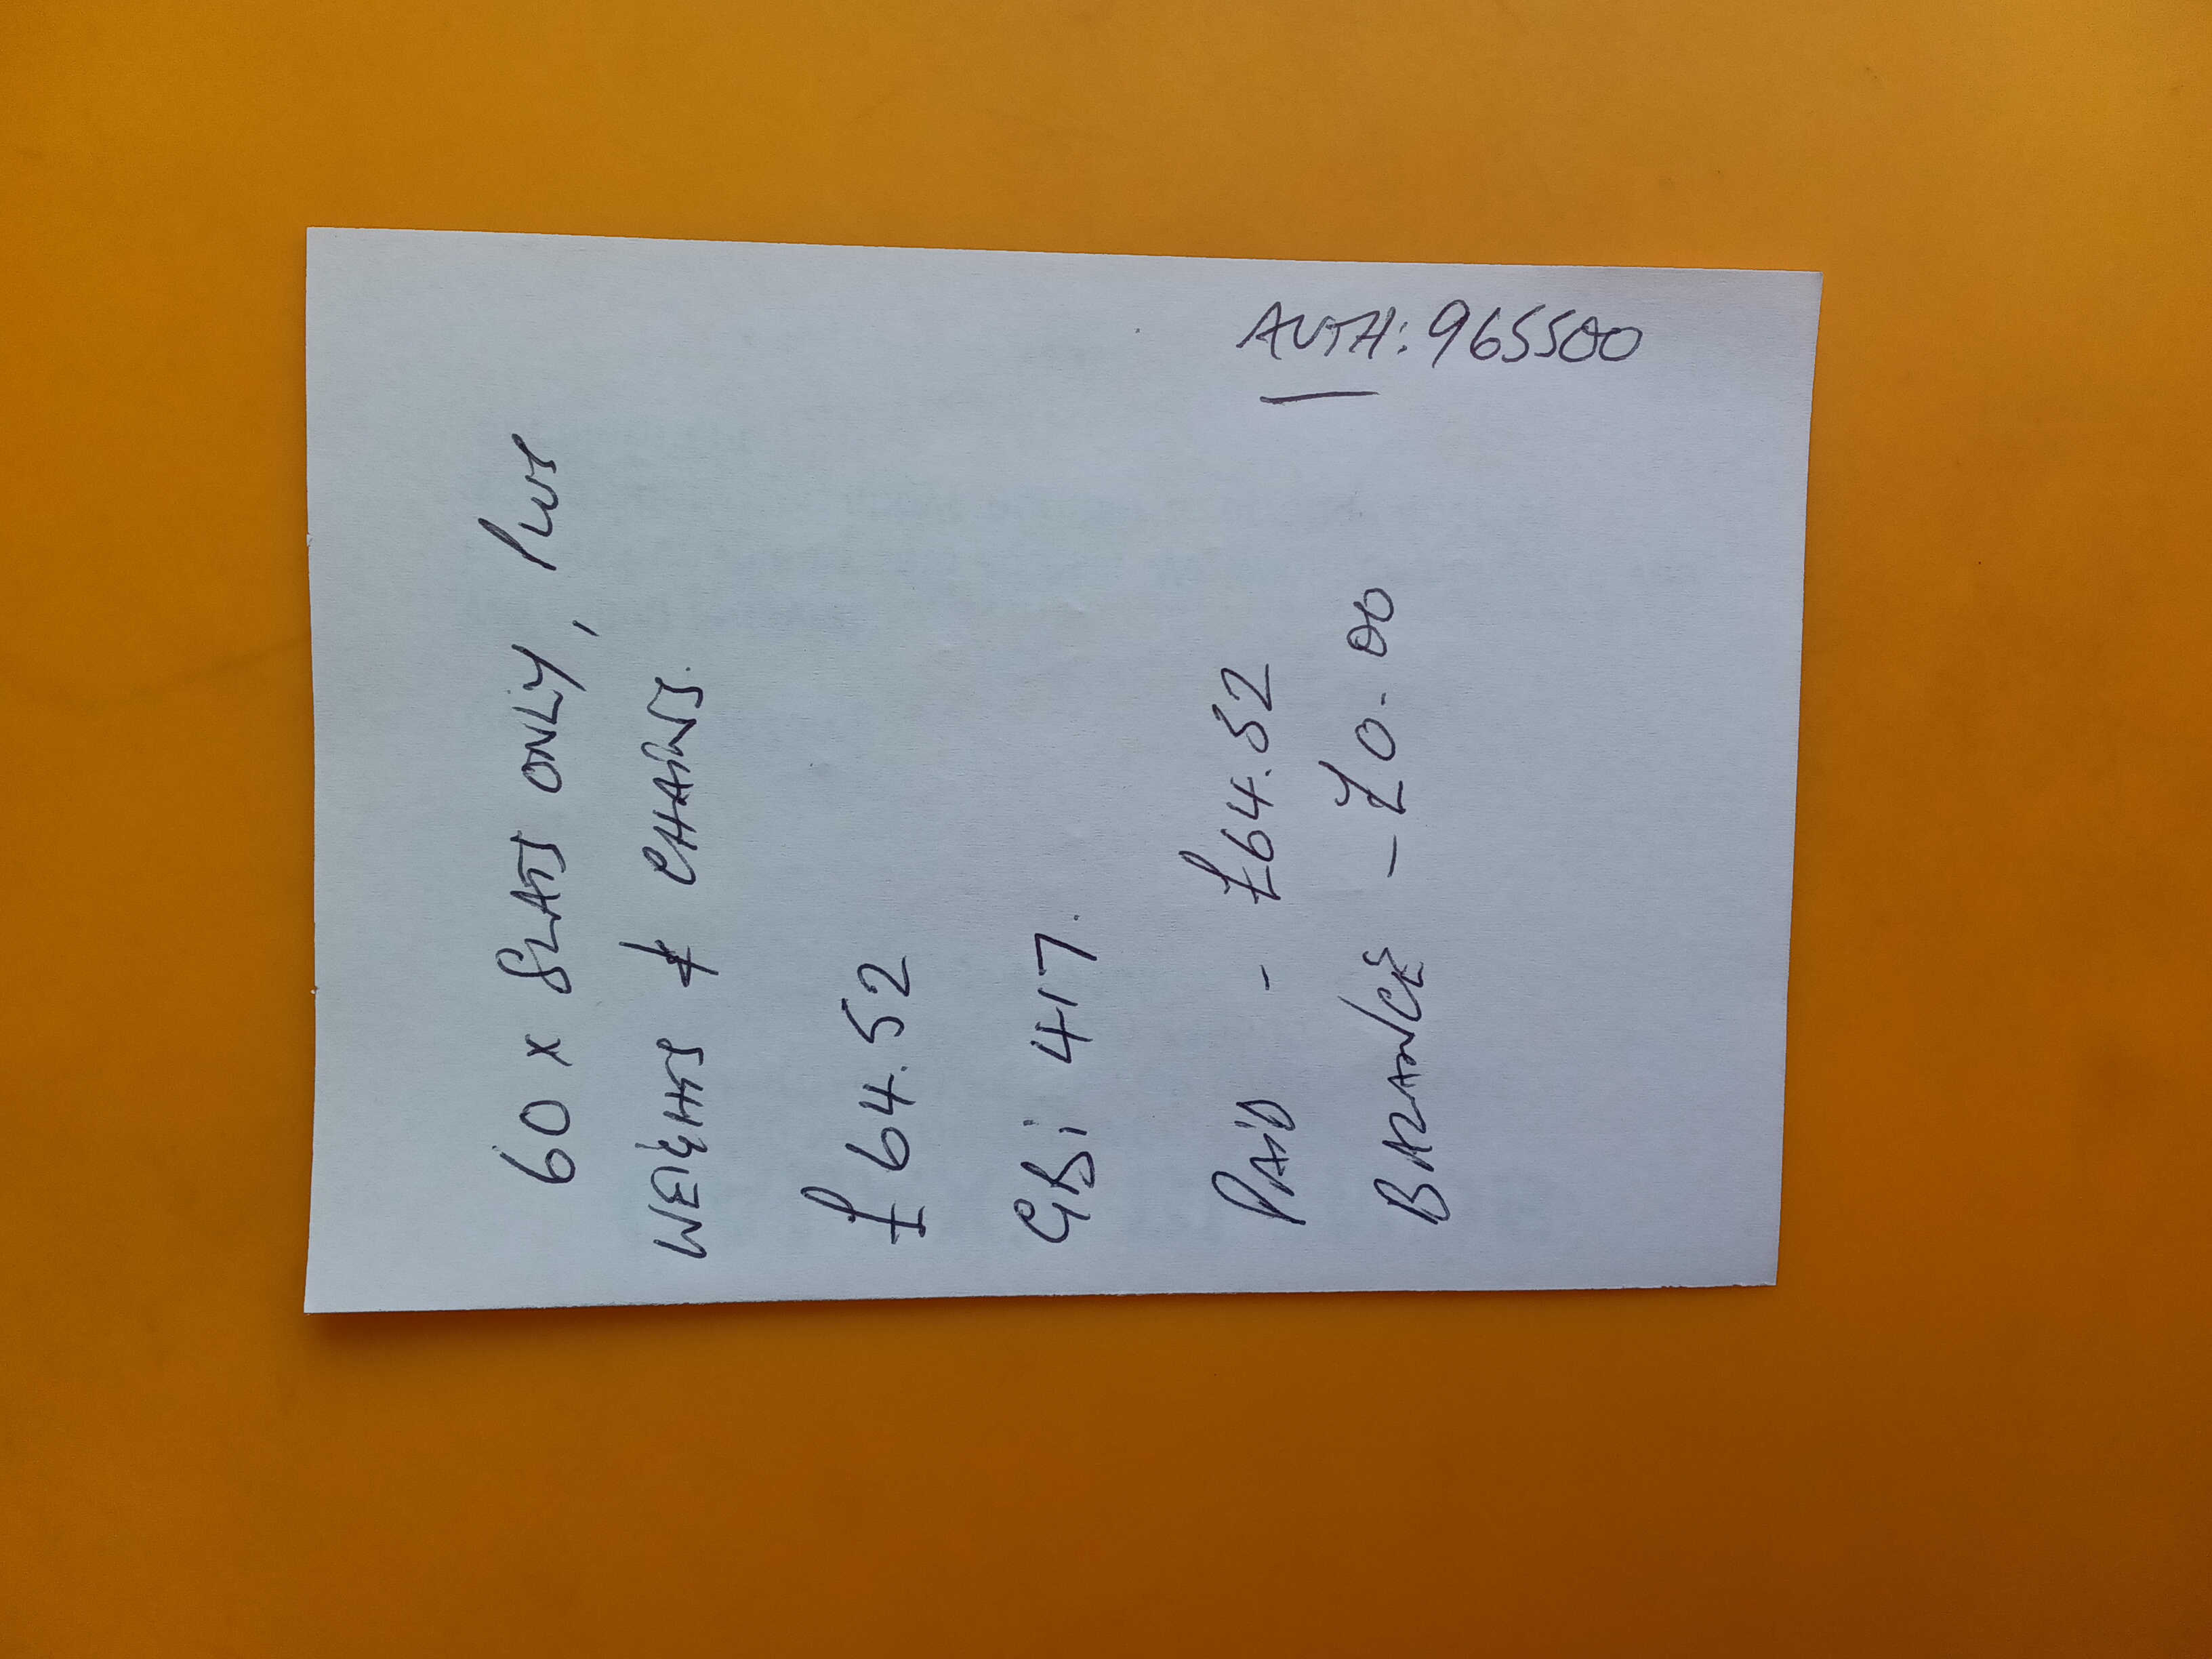 60 x SLATS ONLY, PLUS
WEIGHTS & CHAINS.
£64.52
GBi 417.
PAiD - £64.52
BALANCE - £0.00
AUTH: 965500